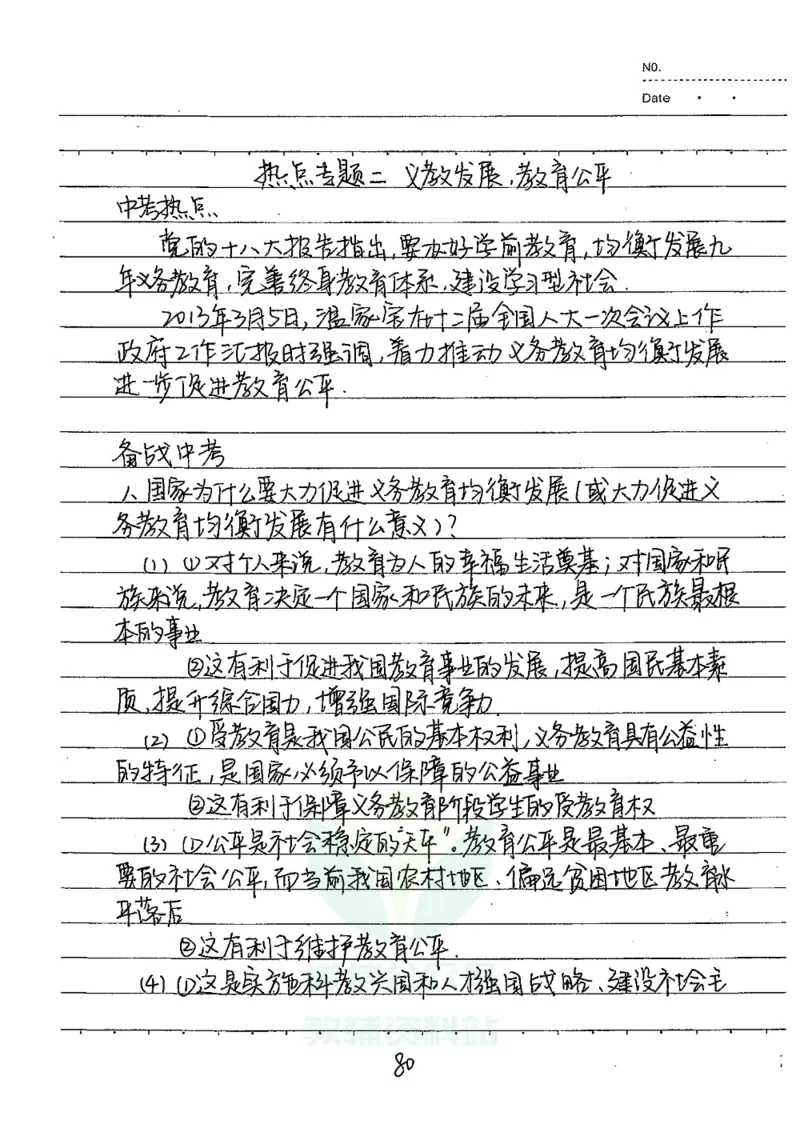 NO.
Date
热点专题二 义教发展,教育公平
中考热点
党的十八大报告指出,要办好学前教育,均衡发展九
年义务教育,完善终身教育体系,建设学习型社会.
2013年3月5日,温家宝在十二届全国人大一次会议上作
政府工作汇报时强调,着力推动义务教育均衡发展
进一步促进教育公平.
备战中考
1、国家为什么要大力促进义务教育均衡发展(或大力促进义
务教育均衡发展有什么意义)?
(1) ①对个人来说,教育为人的幸福生活奠基;对国家和民
族来说,教育决定一个国家和民族的未来,是一个民族最根
本的事业
②这有利于促进我国教育事业的发展,提高国民基本素
质,提升综合国力,增强国际竞争力.
(2) ①受教育是我国公民的基本权利,义务教育具有公益性
的特征,是国家必须予以保障的公益事业
②这有利于保障义务教育阶段学生的受教育权
(3) ①公平是社会稳定的“天平”。教育公平是最基本、最重
要的社会公平,而当前我国农村地区、偏远贫困地区教育水
平落后
②这有利于维护教育公平.
(4) ①这是实施科教兴国和人才强国战略、建设社会主
教辅资料站
80